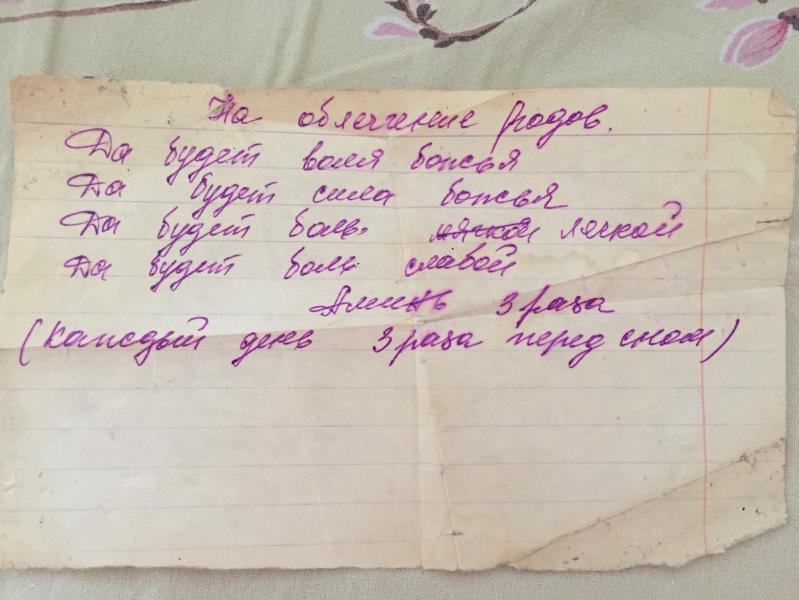 На облегчение родов.
Да будет воля божья
Да будет сила божья
Да будет боль. мягкой легкой
Да будет боль слабой
Аминь 3 раза
(Каждый день 3 раза перед сном)